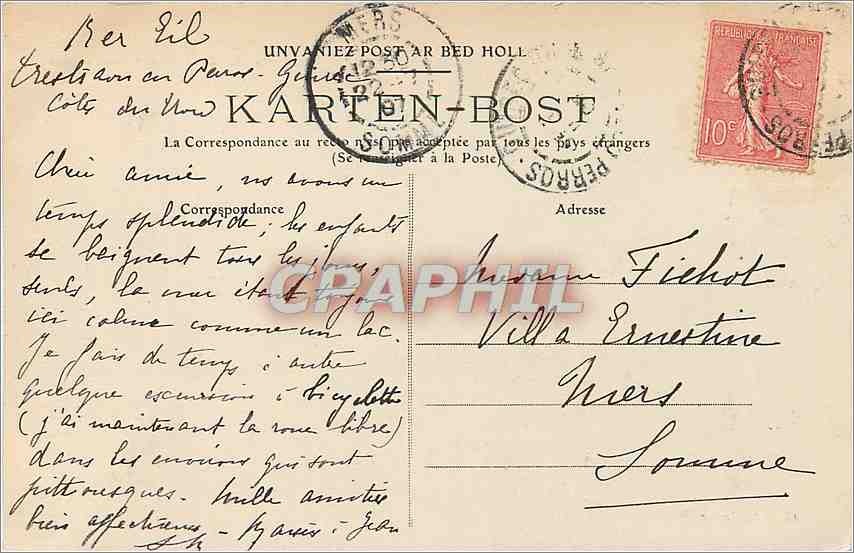 Ker Eil
Trestraou en Perros-Guirec
Côtes du Nord
UNVANIEZ POST AR BED HOLL
KARTEN-BOST
La Correspondance au recto n'est pas acceptée par tous les pays étrangers
(Se renseigner à la Poste)
MERS
12 30
22
07
SOMME
PERROS
REPUBLIQUE FRANÇAISE
10c
PERROS
Correspondance
Chère amie, ns avons un
temps splendide; les enfants
se baignent tous les jours,
seuls, la mer étant toujours
ici calme comme un lac.
Je fais de temps à autre
quelque excursion à bicyclette
(j'ai maintenant la roue libre)
dans les environs qui sont
pittoresques. Mille amitiés
bien affectueuses
Jean
Adresse
Madame Fichot
Villa Ernestine
Mers
Somme
CPAPHIL